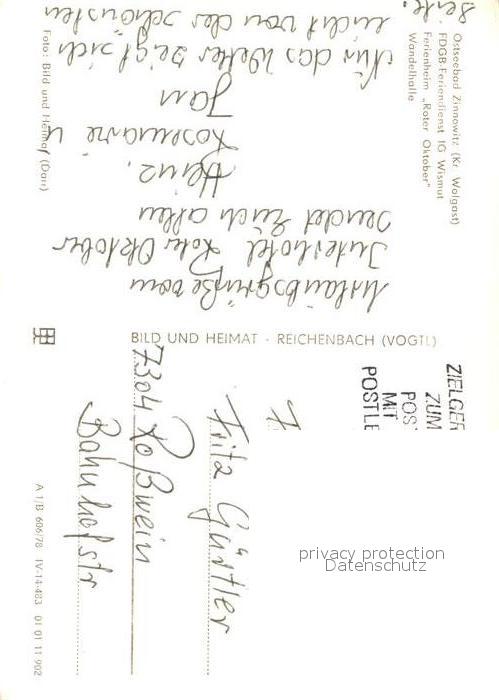 Ostseebad Zinnowitz (Kr. Wolgast)
FDGB-Feriendienst IG Wismut
Ferienheim „Roter Oktober"
Wandelhalle
Urlaubsgrüße vom
Interhotel Roter Oktober
sendet Euch allen
Heinz,
Rosemarie u
Jan
Nur das Wetter zeigt sich
nicht von der schönsten
Seite.
Foto: Bild und Heimat (Darr)
BILD UND HEIMAT · REICHENBACH (VOGTL)
ZIELGER
ZUM
POS
MIT
POSTLE
F
Fritz Gürtler
7304 Roßwein
Bahnhofstr
A 1/B 606/78 IV-14-483 01 01 11 902
privacy protection
Datenschutz